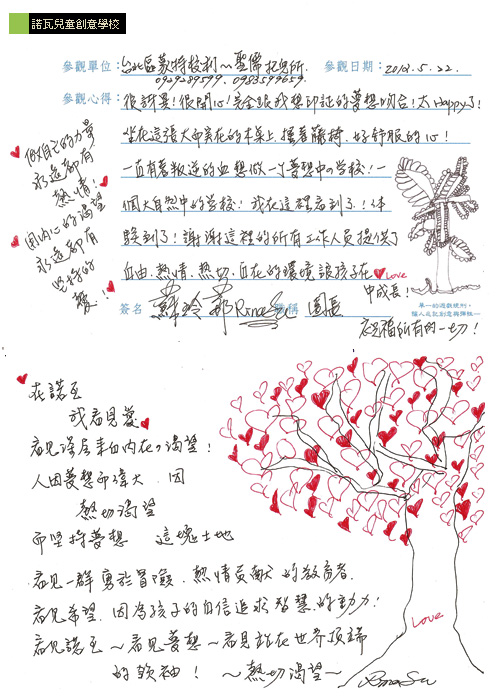 諾瓦兒童創意學校
參觀單位：台北區蒙特梭利～聖儒托兒所. 參觀日期：2013.5.22.
參觀心得：很訝異!很開心!完全跟我想印証的夢想吻合!太Happy了!
坐在這張大而實在的木桌上,搖著藤椅,好舒服的心!
一直有著叛逆的血想做一個夢想中的学校!一
個大自然中的学校!我在這裡看到了!体
驗到了!謝謝這裡的所有工作人員提供了
自由.熱情.熱血.自在的環境讓孩子在 Love
中成長!
簽名 Rina Su 職稱 園長
祝福所有的一切!
做自己的力量
永遠都有
熱情!
因內心的渴望
永遠都有
堅持的
夢!
單一的遊戲規則,
讓人走訊創意與彈性…
在諾瓦
我看見愛
看見深层来自内在の渴望!
人因夢想而偉大.因
熱切渴望
而坚持夢想 這塊土地
看見一群勇於冒險.熱情貢献的教育者.
看見希望.因為孩子的自信追求智慧的動力!
看見諾瓦～看見夢想～看見站在世界頂端
的領袖! ～熱切渴望～
Love
Rina Su